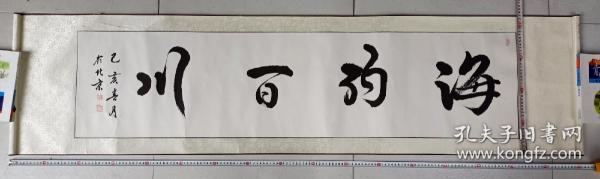 海纳百川
己亥春月
于北京
孔夫子旧书网
www.kongfz.com